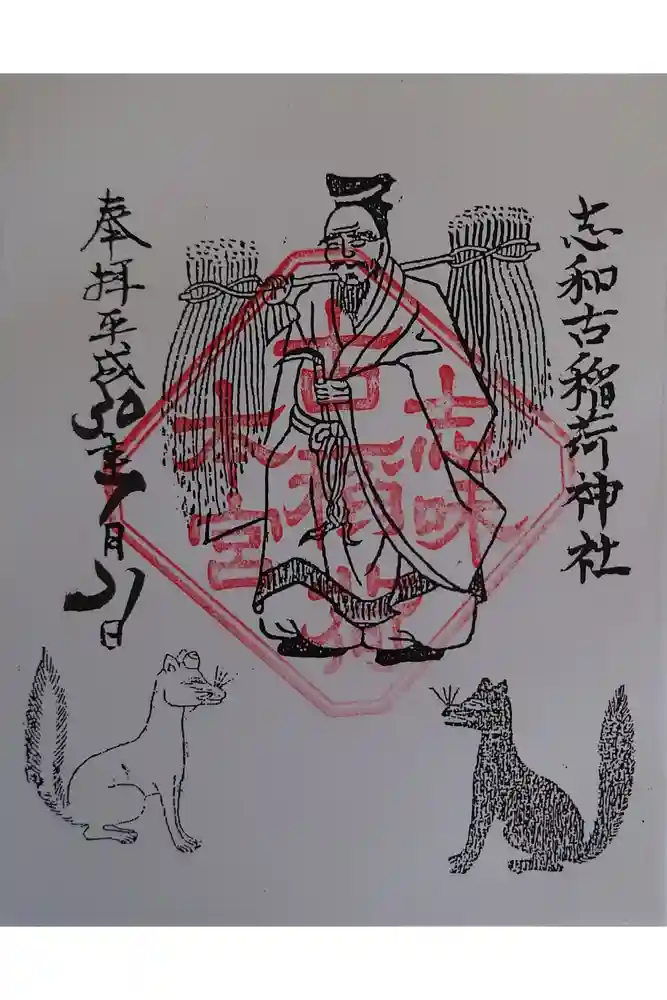 志和古稲荷神社
奉拝平成30年7月21日
志味
古稲荷
本宮